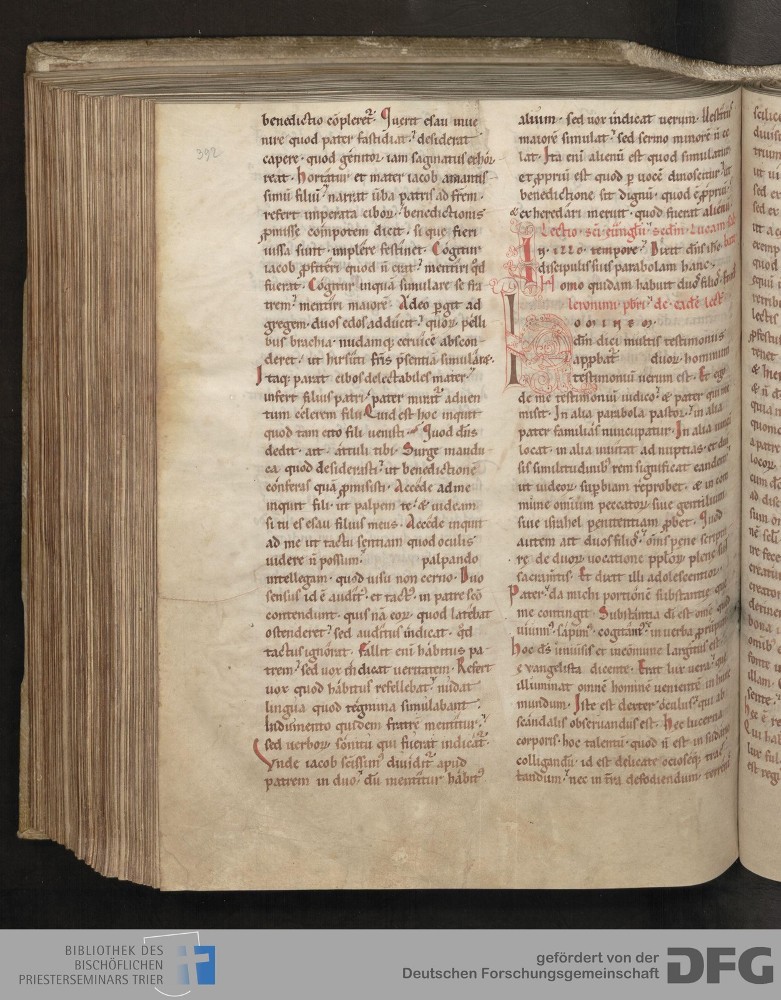 392
benedictio cōpleret᷑. Querit esau inue
nire quod pater fastidiat. desiderat
capere. quod genitor iam saginatus exhor
reat. Hortatur et mater iacob amantis
simū filiū. narrat ūba patris ad frēm.
refert imperata cibor̄. benedictionis
ꝓmisse compotem dicit. si que fieri
iussa sunt. implere festinet. Cogitur
iacob ꝓfiteri quod ñ erat. mentiri qd̄
fuerat. Cogitur inquā simulare se fra
trem. mentiri maiorē. Adeo ꝑgit ad
gregem. duos edos adducit. quor̄ pelli
bus brachia. nudamq; ceruicē abscon
deret. ut hirsuti fr̄is p̄sentiā simularet.
Itaq; parat cibos delectabiles mater.
infert filius patri. pater mirat᷑ aduen
tum celerem filii. Quid est hoc inquit
quod tam cito fili uenisti. Quod dn̄s
dedit. ait. attuli tibi. Surge mandu
ca quod desiderasti. ut benedictionē
conferas quā ꝓmisisti. Accede ad me
inquit fili. ut palpem te. & uideam
si tu es esau filius meus. Accede inquit
ad me ut tactu sentiam quod oculis
uidere ñ possum. palpando
intellegam. quod uisu non cerno. Duo
sensus id ē audit᷒. et tact᷒. in patre seō
contendunt. quis nā eor̄. quod latebat
ostenderet. sed auditus indicat. qd̄
tactus ignorat. Fallit eni habitus pa
trem. sed uox indicat ueritatem. Refert
uox quod habitus refellebat. nudat
lingua quod tegmina simulabant.
Indumento quidem fratrē mentitur.
sed uerbor̄ sonitu qui fuerat indicat᷑.
Vnde iacob scissim᷒ diuidit᷑ apud
patrem in duo. dū mentitur habit᷒
alium. sed uox indicat uerum. Vestitus
maiorē simulat. sed sermo minorē ñ ce
lat. Ita eni alienū est quod simulatur
et ꝓpriū est quod ꝑ uocē dinoscitur. ut
benedictione sit dignū. quod ē ꝓpriū.
& exheredari meruit. quod fuerat alienū.
Lectio. sc̄i euūgłii sedm̄. Lucam.
In illo tempore. Dixit dn̄s ihc̄
discipulis suis parabolam hanc.
Homo quidam habuit duos filios.
Ieronimi. pbr̄i. de eadē lect̄.
dām dici multis testimoniis
app̄bat᷑ duor̄ hominum
testimoniū uerum est. Et ego
de me testimoniū iudico. & pater qui me
misit. In alia parabola pastor. in alia
pater familias nuncupatur. In alia uineā
locat. in alia inuitat ad nuptias. et
similitudinib᷒ rem significat eandem
ut iudeor̄ supbiam reprobet. & in com
mune omium peccator̄ siue gentilium
siue israhel penitentiam ꝓbet. Quod
autem ait duos filios. om̄s pene scriptu
re de duor̄ uocatione pplor̄ plene sunt
sacramtis. Et dixit illi adolescentior
Pater. da michi portionē substantie que
me contingit. Substantia di est omē quod
uiuim᷒. sapim᷒. cogitam᷒. in uerba ꝓrūpim᷒
Hoc ds̄ uniuisis et incōmune largitus est
euangelista dicente. Erat lux uera. que
illuminat omnē hominē uenientē in hunc
mundum. Iste est dexter oculus. qui ab
scandalis obseruandus est. Hec lucerna
corporis. hoc talentū. quod ñ est in sudario
colligandū. id est delicate ocioseq; trac
tandum. nec in t̄ra defodiendum.
BIBLIOTHEK DES
BISCHÖFLICHEN
PRIESTERSEMINARS TRIER
gefördert von der
Deutschen Forschungsgemeinschaft
DFG